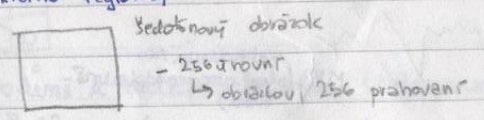 šedotónový obrázok
- 256 úrovní
↳ obrázkov, 256 prahovaní